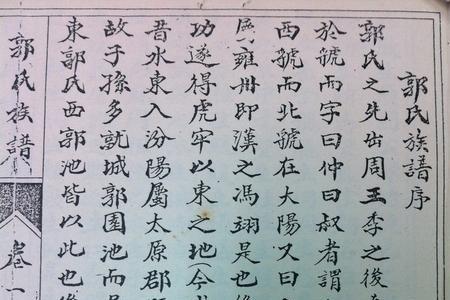 郭氏族譜序
郭氏之先出周王季之後
於虢而字曰仲曰叔者謂
西虢而北虢在大陽又曰
雍州即漢之馮翊是也
功遂得虎牢以東之地(今
昔水東入汾陽屬太原郡
故子孫多就城郭園池而
東郭氏西郭池皆以此也
郭氏族譜
卷一